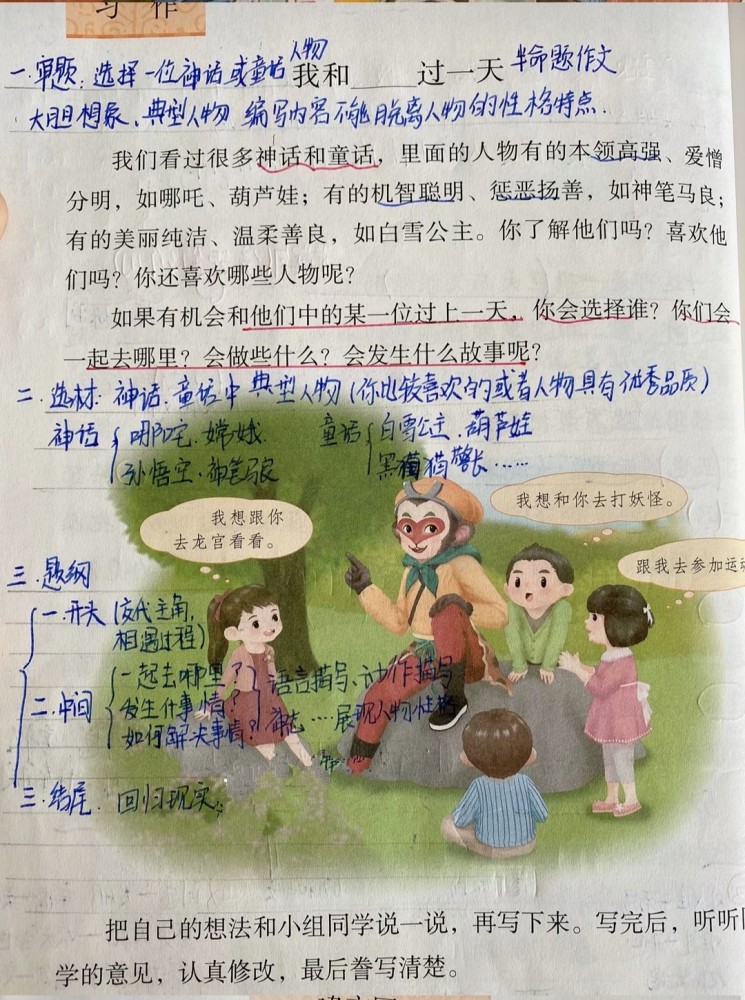 习 作
一.审题:选择一位神话或童话人物
我和____过一天 半命题作文
大胆想象、典型人物、编写内容不能脱离人物的性格特点.
我们看过很多神话和童话,里面的人物有的本领高强、爱憎
分明,如哪吒、葫芦娃;有的机智聪明、惩恶扬善,如神笔马良;
有的美丽纯洁、温柔善良,如白雪公主。你了解他们吗?喜欢他
们吗?你还喜欢哪些人物呢?
如果有机会和他们中的某一位过上一天,你会选择谁?你们会
一起去哪里?会做些什么?会发生什么故事呢?
二.选材:神话、童话中典型人物(你比较喜欢的或者人物具有优秀品质)
神话 哪吒、嫦娥. 童话 白雪公主、葫芦娃
孙悟空、神笔马良 黑猫警长……
我想跟你
去龙宫看看。
我想和你去打妖怪。
跟我去参加运动
三.题纲
一.开头(交代主角,
相遇过程)
二.中间 一起去哪里? 语言描写、动作描写
发生什事情? 神态…展现人物性格
如何解决事情?
三.结尾. 回归现实.
把自己的想法和小组同学说一说,再写下来。写完后,听听同
学的意见,认真修改,最后誊写清楚。